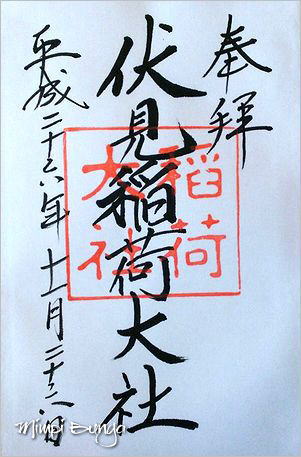 奉拝
伏見稲荷大社
稲荷
大社
平成二十六年十一月二十二日
Mimpi Bunga